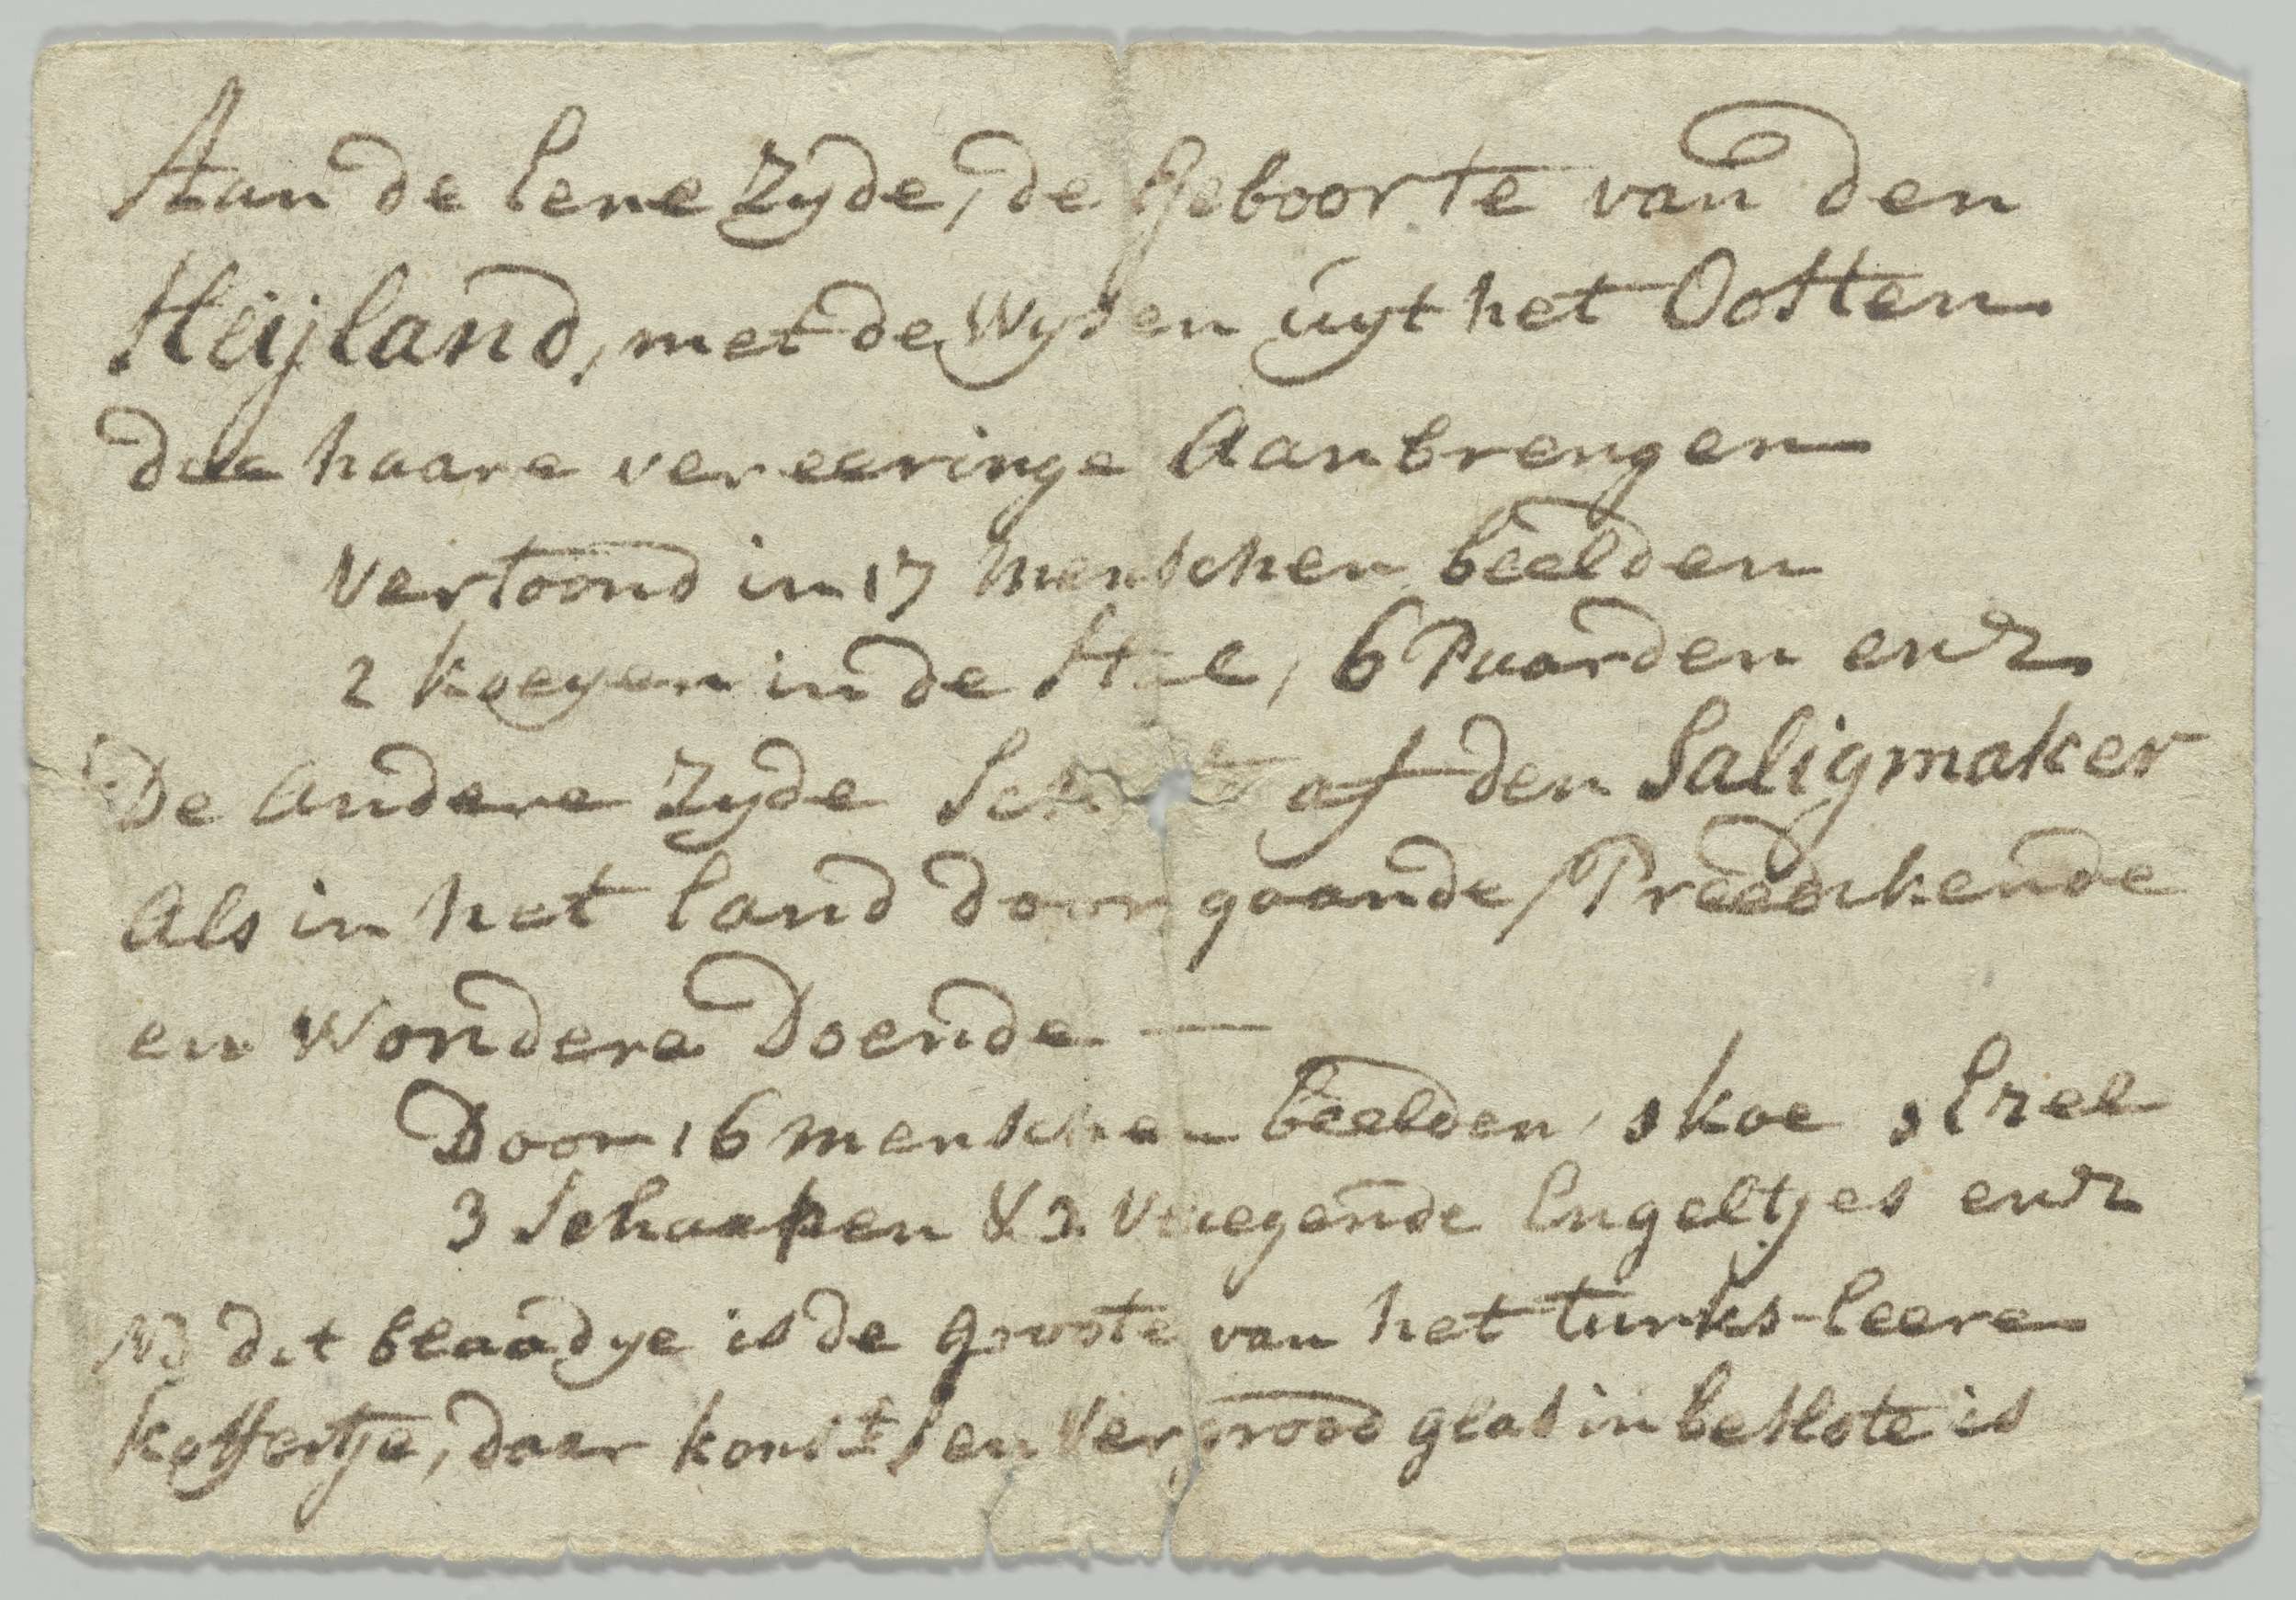 Aan de Eene Zyde, de Geboorte van den
Heijland, met de Wysen uyt het Oosten
die haare vereeringe Aanbrengen
Vertoond in 17 menschen beelden
2 koeyen in de Stal, 6 Paarden enz.
De Andere Zyde af den Saligmaker
Als in het Land door gaande, Preedikende
en Wondere Doende —
Door 16 menschen beelden, 1 koe 1 Ezel
3 Schaapen & 3 Vliegende Engeltjes enz
NB dit blaadye is de groote van het turks-leere
koffertje, daar konst en Vergrood glas in beslote is